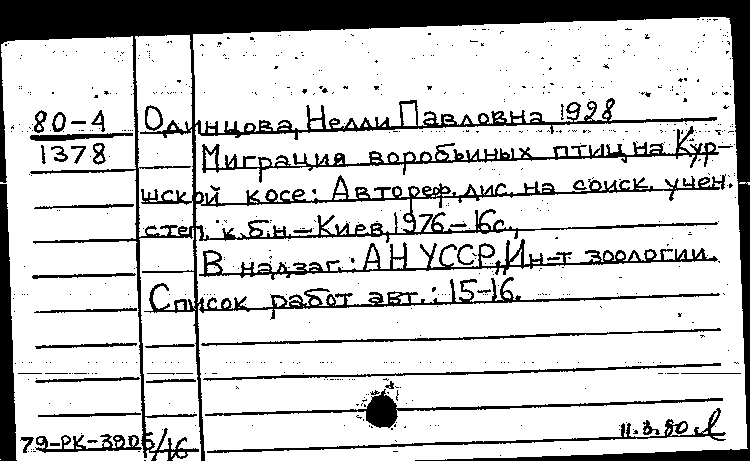 80-4 Одинцова, Нелли Павловна, 1928
1378 Миграция воробьиных птиц на Кур-
шской косе: Автореф. дис. на соиск. учен.
степ. к.б.н. – Киев, 1976. – 16с.,
В надзаг.: АН УССР, Ин-т зоологии.
Список работ авт.: 15-16.
79-РК-3905/16 11.3.80